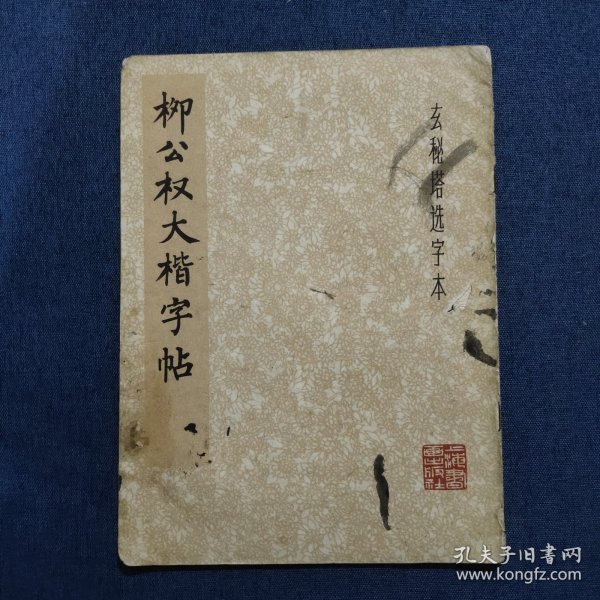 柳公权大楷字帖
玄秘塔选字本
上海书
画出版社
孔夫子旧书网
www.kongfz.com